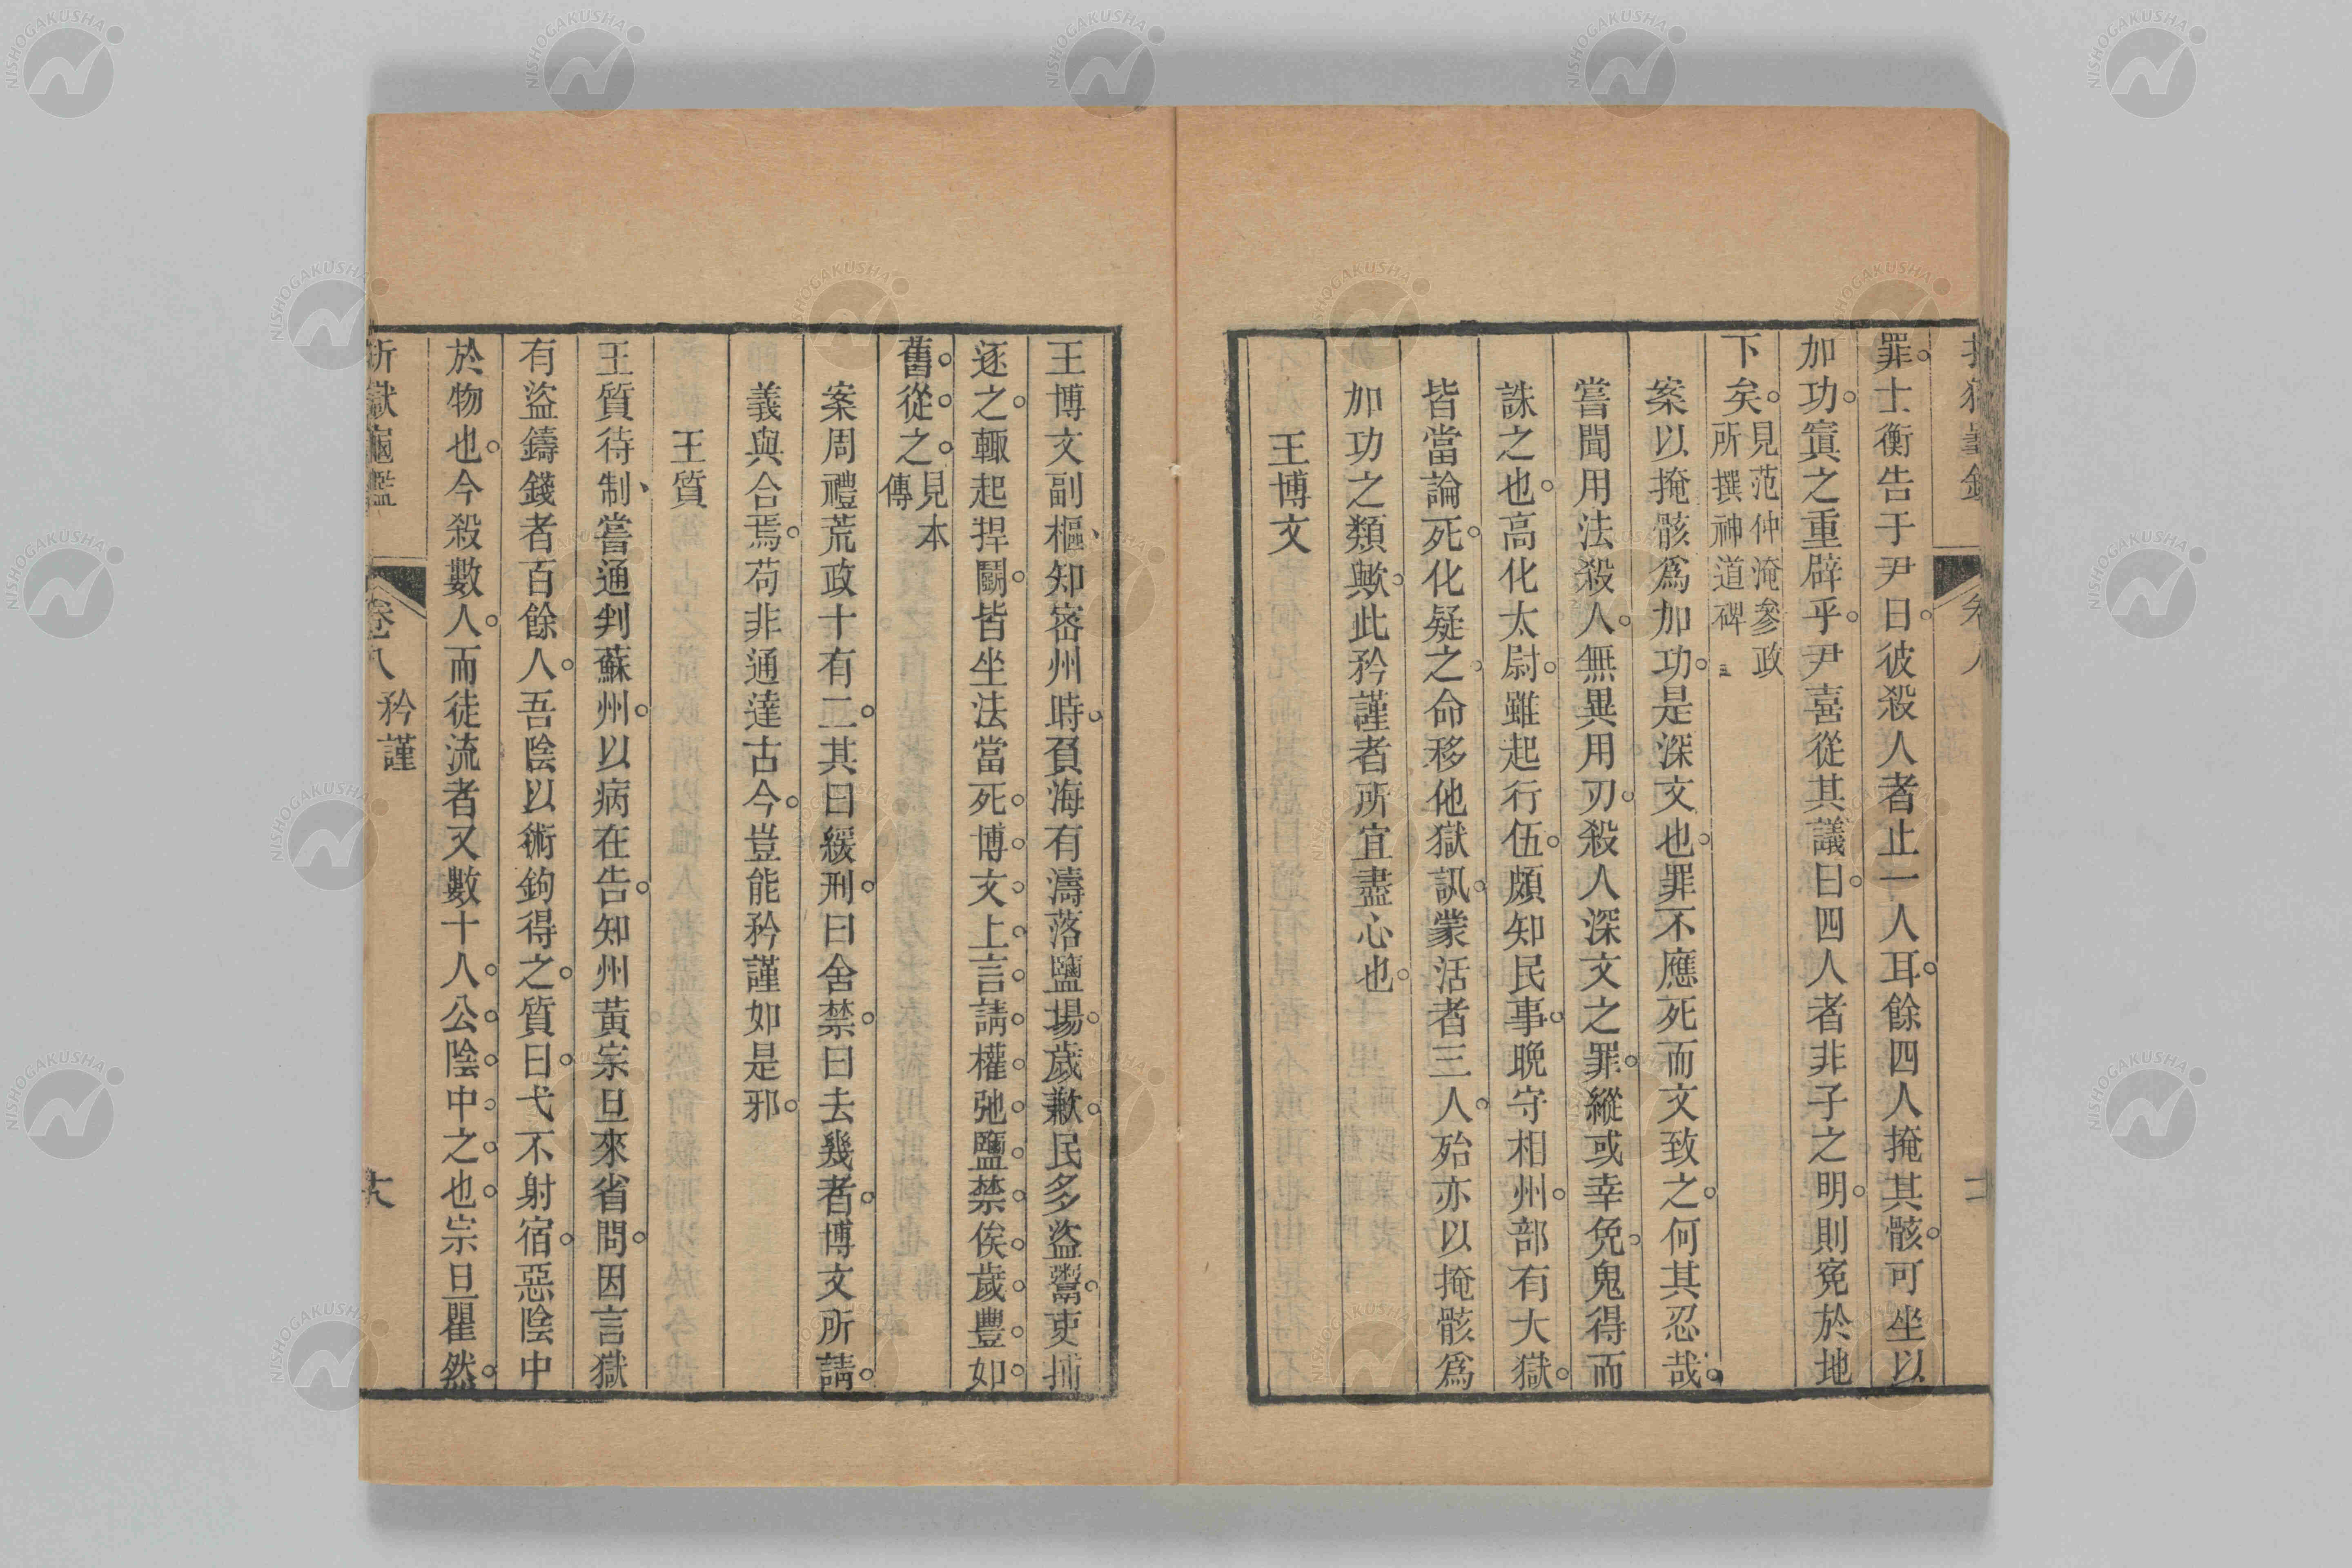 罪。士衡告于尹曰。彼殺人者止一人耳。餘四人掩其骸。可坐以
加功。寘之重辟乎。尹喜從其議曰。四人者非子之明。則冤於地
下矣。見范仲淹參政所撰神道碑
案以掩骸爲加功。是深文也。罪不應死而文致之。何其忍哉。
嘗聞用法殺人。無異用刃。殺人深文之罪。縱或幸免。鬼得而
誅之也。高化太尉。雖起行伍。頗知民事。晩守相州。部有大獄。
皆當論死。化疑之。命移他獄訊。蒙活者三人。殆亦以掩骸爲
加功之類歟。此矜謹者所宜盡心也。
王博文
王博文副樞、知密州時。負海有濤落鹽場。歲歉。民多盜鬻。吏捕
逐之。輒起捍鬭。皆坐法當死。博。文。上。言。請。權。弛。鹽。禁。俟。歲。豐。如。
舊。從。之。見本傳
案周禮荒政十有二。其曰緩刑。曰舍禁。曰去幾者。博文所請。
義與合焉。苟非通達古今。豈能矜謹如是邪。
王質
王質待制、嘗通判蘇州。以病在告。知州黃宗旦來省問。因言獄
有盜鑄錢者百餘人。吾陰以術鉤得之。質曰。弋不射宿。惡陰中
於物也。今殺數人。而徒流者又數十人。公。陰。中。之。也。宗旦瞿然。
折獄龜鑑
卷八
矜謹
NISHOGAKUSHA